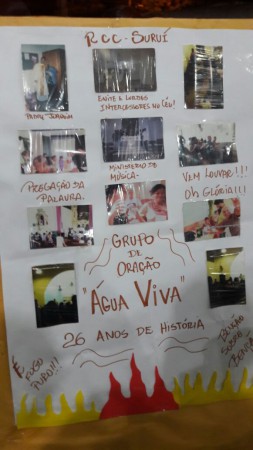 RCC - SURUÍ
PADRE JOAQUIM
ENITE E LURDES
INTERCESSORAS NO CÉU!
PREGAÇÃO DA
PALAVRA.
MINISTÉRIO DE
MÚSICA-
VEM LOUVAR!!!
OH GLÓRIA!!!
GRUPO
DE
ORAÇÃO
"ÁGUA VIVA"
26 ANOS DE HISTÓRIA
FOGO
PURO!!!